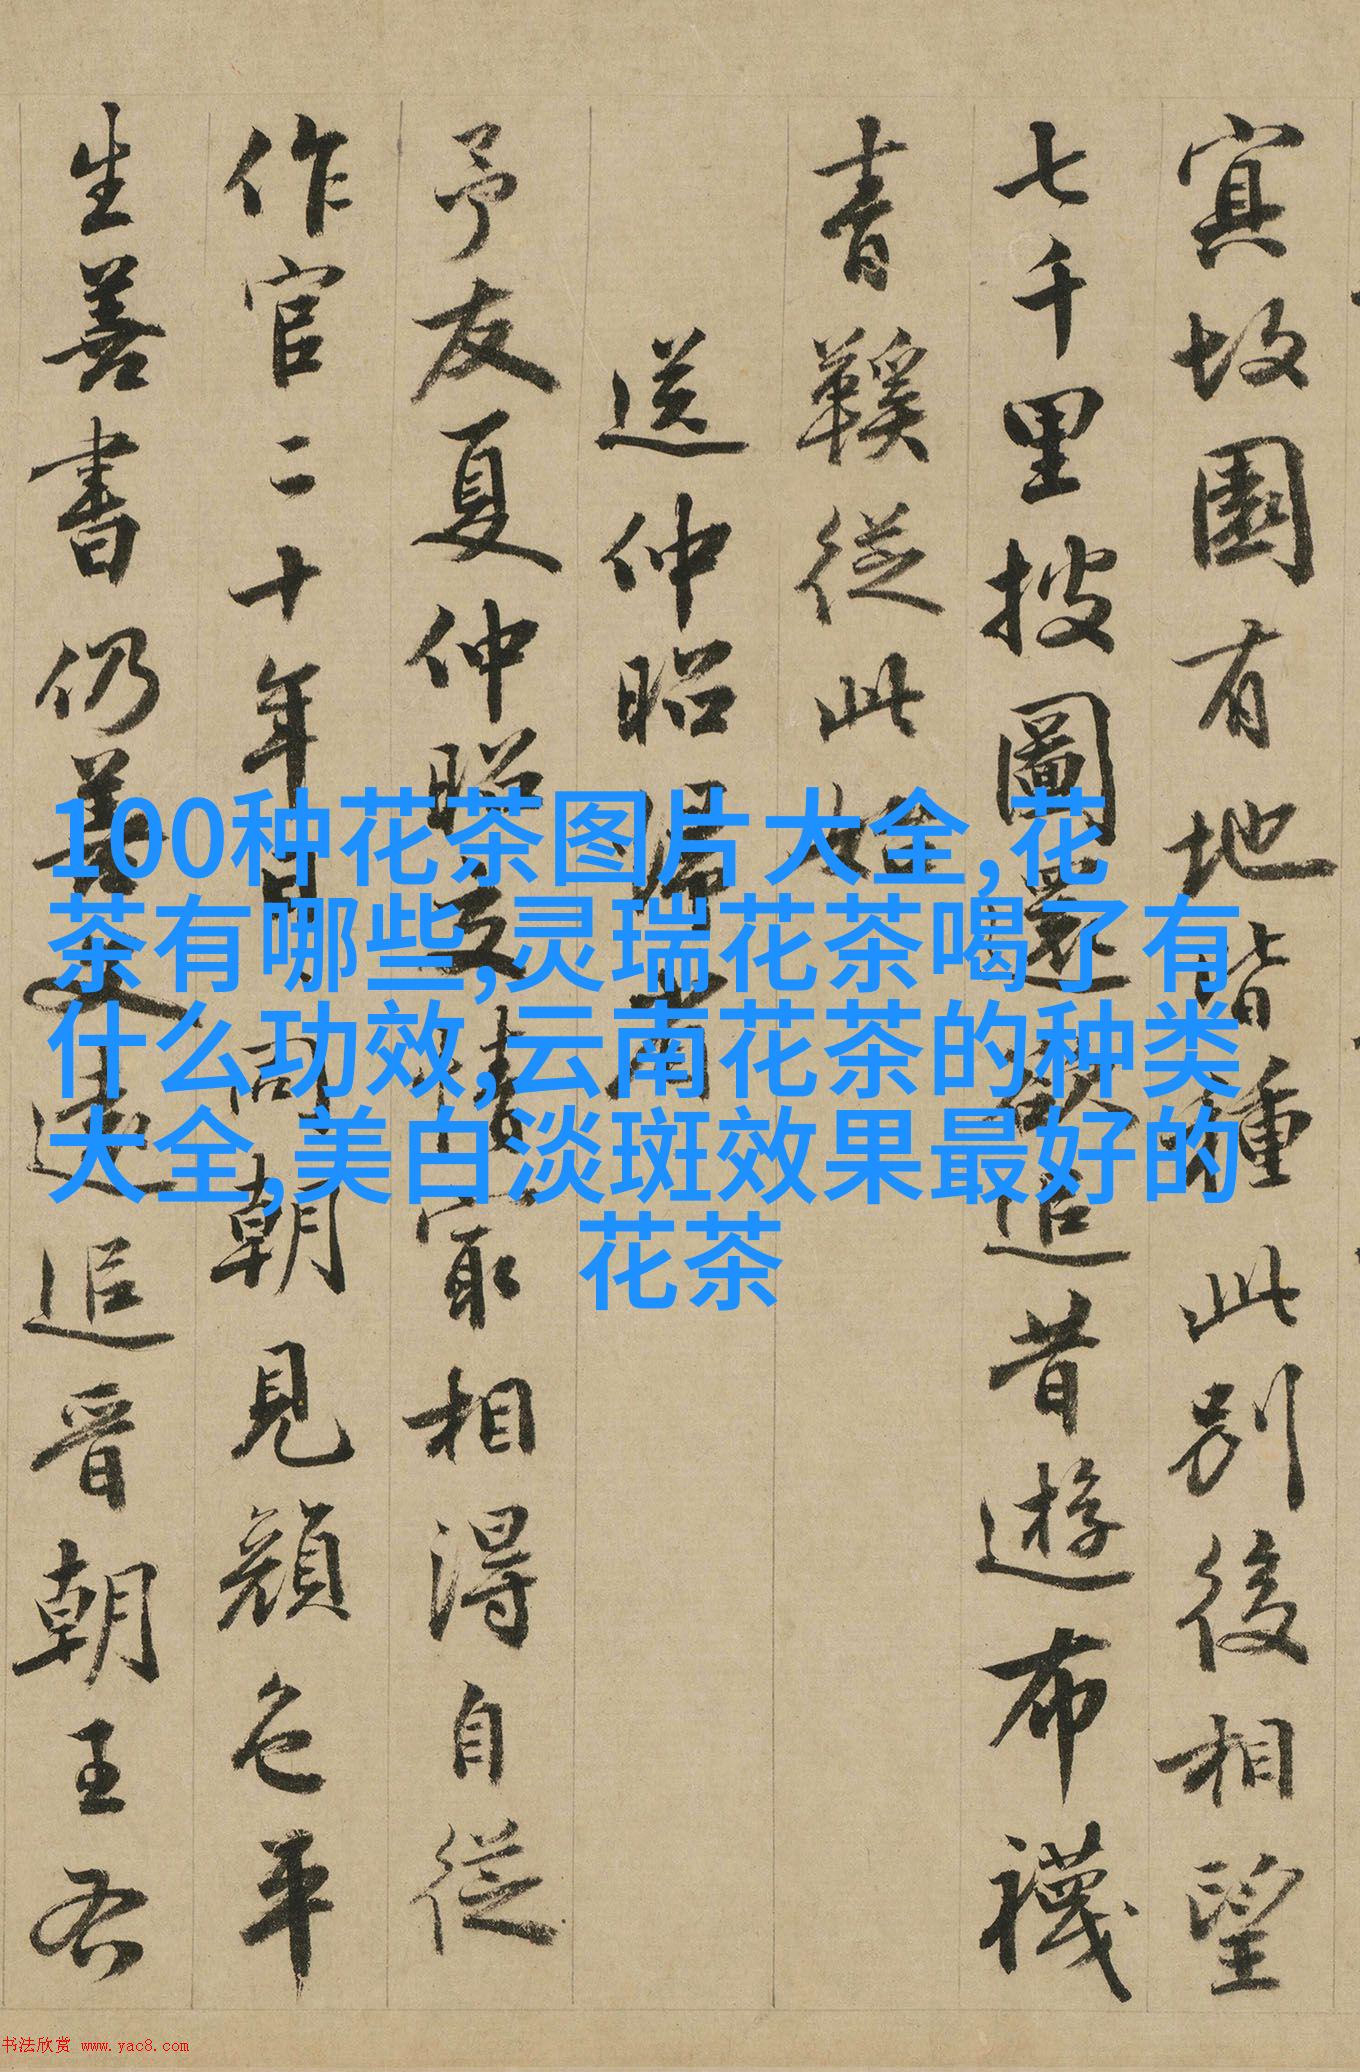 寘故園有地皆種此別後相望
七千里披圖還欲追昔遊布襪
青鞵從此始
送仲昭歸南
予友夏仲昭交情家相得自從
作官二十年日同朝見顏色平
生善書仍善文遠追晉朝王右
100种花茶图片大全,花
茶有哪些,灵瑞花茶喝了有
什么功效,云南花茶的种类
大全,美白淡斑效果最好的
花茶
书法欣赏 www.yac8.com